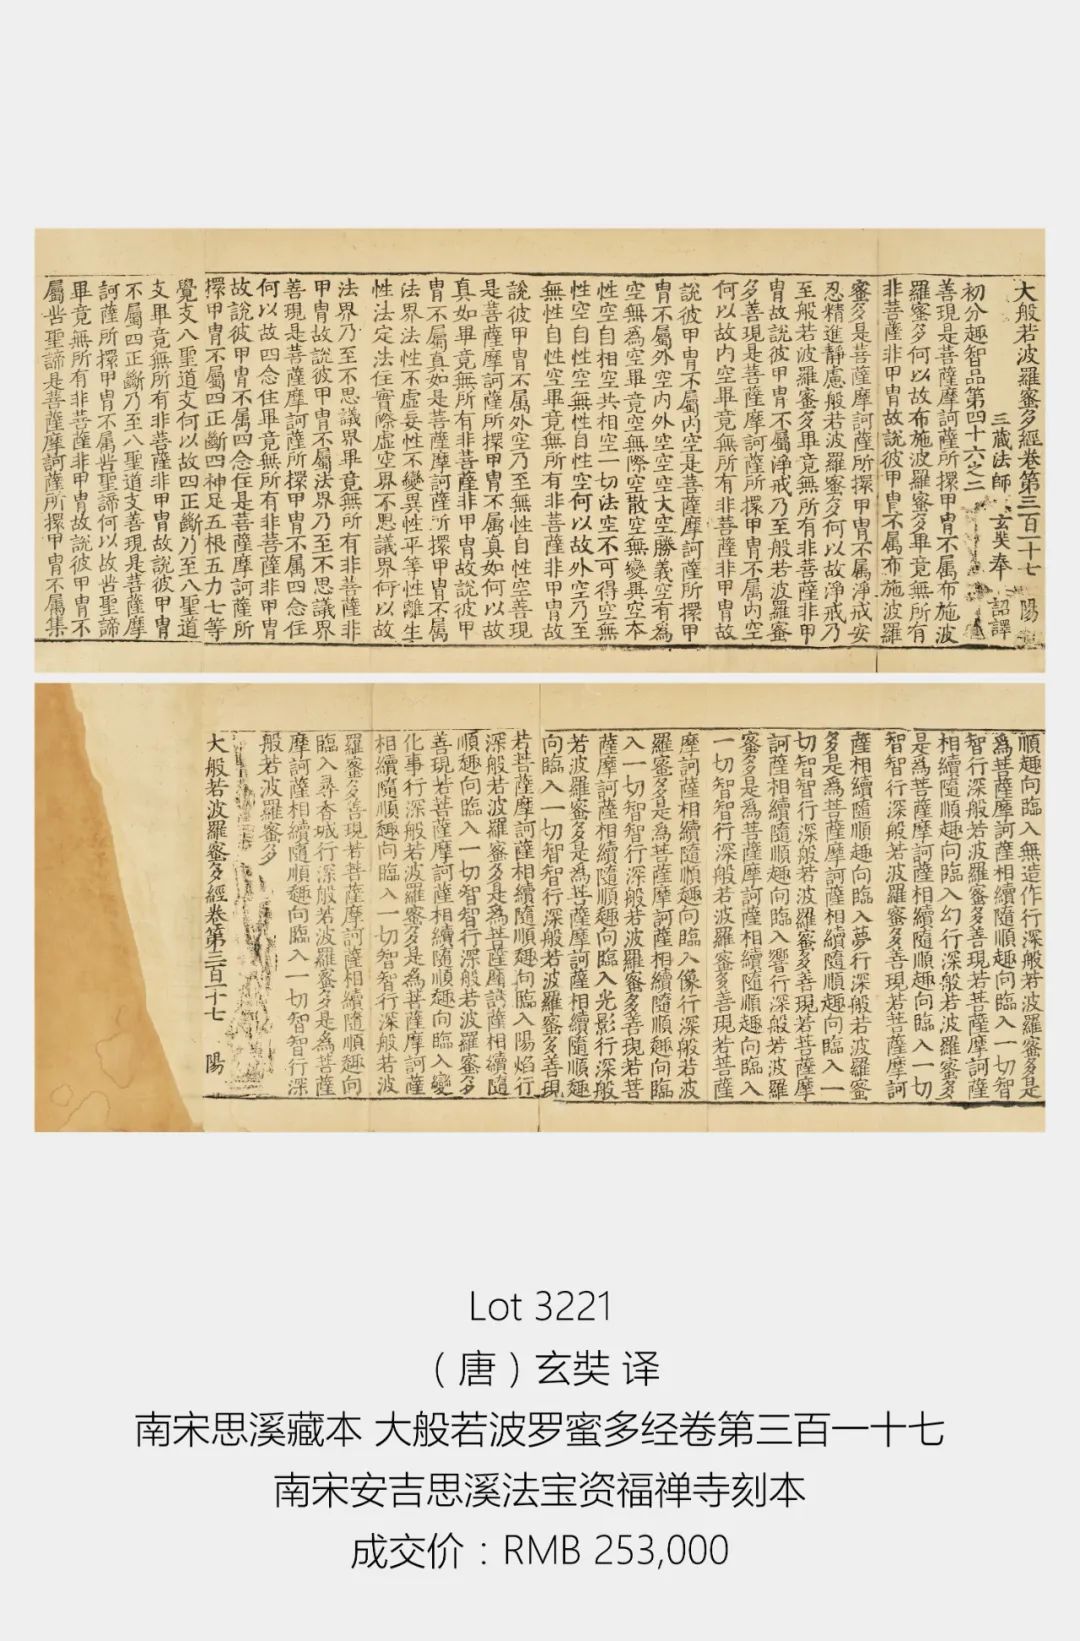 大般若波羅蜜多經卷第三百一十七 陽
三藏法師 玄奘奉 詔譯
初分趣智品第四十六之二
善現是菩薩摩訶薩所擐甲冑不属布施波
羅蜜多何以故布施波羅蜜多畢竟無所有
非菩薩非甲冑故說彼甲冑不属布施波羅
蜜多是菩薩摩訶薩所擐甲冑不属淨戒安
忍精進靜慮般若波羅蜜多何以故淨戒乃
至般若波羅蜜多畢竟無所有非菩薩非甲
冑故說彼甲冑不屬淨戒乃至般若波羅蜜
多善現是菩薩摩訶薩所擐甲冑不属内空
何以故内空畢竟無所有非菩薩非甲冑故
說彼甲冑不屬内空是菩薩摩訶薩所擐甲
冑不屬外空内外空空空大空勝義空有為
空無為空畢竟空無際空散空無變異空本
性空自相空共相空一切法空不可得空無
性空自性空無性自性空何以故外空乃至
無性自性空畢竟無所有非菩薩非甲冑故
說彼甲冑不属外空乃至無性自性空善現
是菩薩摩訶薩所擐甲冑不属真如何以故
真如畢竟無所有非菩薩非甲冑故說彼甲
冑不屬真如是菩薩摩訶薩所擐甲冑不属
法界法性不虛妄性不變異性平等性離生
性法定法住實際虛空界不思議界何以故
法界乃至不思議界畢竟無所有非菩薩非
甲冑故說彼甲冑不屬法界乃至不思議界
善現是菩薩摩訶薩所擐甲冑不属四念住
何以故四念住畢竟無所有非菩薩非甲冑
故說彼甲冑不属四念住是菩薩摩訶薩所
擐甲冑不屬四正斷四神足五根五力七等
覺支八聖道支何以故四正斷乃至八聖道
支畢竟無所有非菩薩非甲冑故說彼甲冑
不屬四正斷乃至八聖道支善現是菩薩摩
訶薩所擐甲冑不属苦聖諦何以故苦聖諦
畢竟無所有非菩薩非甲冑故說彼甲冑不
屬苦聖諦是菩薩摩訶薩所擐甲冑不属集
順趣向臨入無造作行深般若波羅蜜多是
為菩薩摩訶薩相續隨順趣向臨入一切智
智行深般若波羅蜜多善現若菩薩摩訶薩
相續隨順趣向臨入幻行深般若波羅蜜多
是為菩薩摩訶薩相續隨順趣向臨入一切
智智行深般若波羅蜜多善現若菩薩摩訶
薩相續隨順趣向臨入夢行深般若波羅蜜
多是為菩薩摩訶薩相續隨順趣向臨入一
切智智行深般若波羅蜜多善現若菩薩摩
訶薩相續隨順趣向臨入響行深般若波羅
蜜多是為菩薩摩訶薩相續隨順趣向臨入
一切智智行深般若波羅蜜多善現若菩薩
摩訶薩相續隨順趣向臨入像行深般若波
羅蜜多是為菩薩摩訶薩相續隨順趣向臨
入一切智智行深般若波羅蜜多善現若菩
薩摩訶薩相續隨順趣向臨入光影行深般
若波羅蜜多是為菩薩摩訶薩相續隨順趣
向臨入一切智智行深般若波羅蜜多善現
若菩薩摩訶薩相續隨順趣向臨入陽焰行
深般若波羅蜜多是為菩薩摩訶薩相續隨
順趣向臨入一切智智行深般若波羅蜜多
善現若菩薩摩訶薩相續隨順趣向臨入變
化事行深般若波羅蜜多是為菩薩摩訶薩
相續隨順趣向臨入一切智智行深般若波
羅蜜多善現若菩薩摩訶薩相續隨順趣向
臨入尋香城行深般若波羅蜜多是為菩薩
摩訶薩相續隨順趣向臨入一切智智行深
般若波羅蜜多
大般若波羅蜜多經卷第三百一十七 陽
Lot 3221
（唐）玄奘 译
南宋思溪藏本 大般若波罗蜜多经卷第三百一十七
南宋安吉思溪法宝资福禅寺刻本
成交价：RMB 253,000